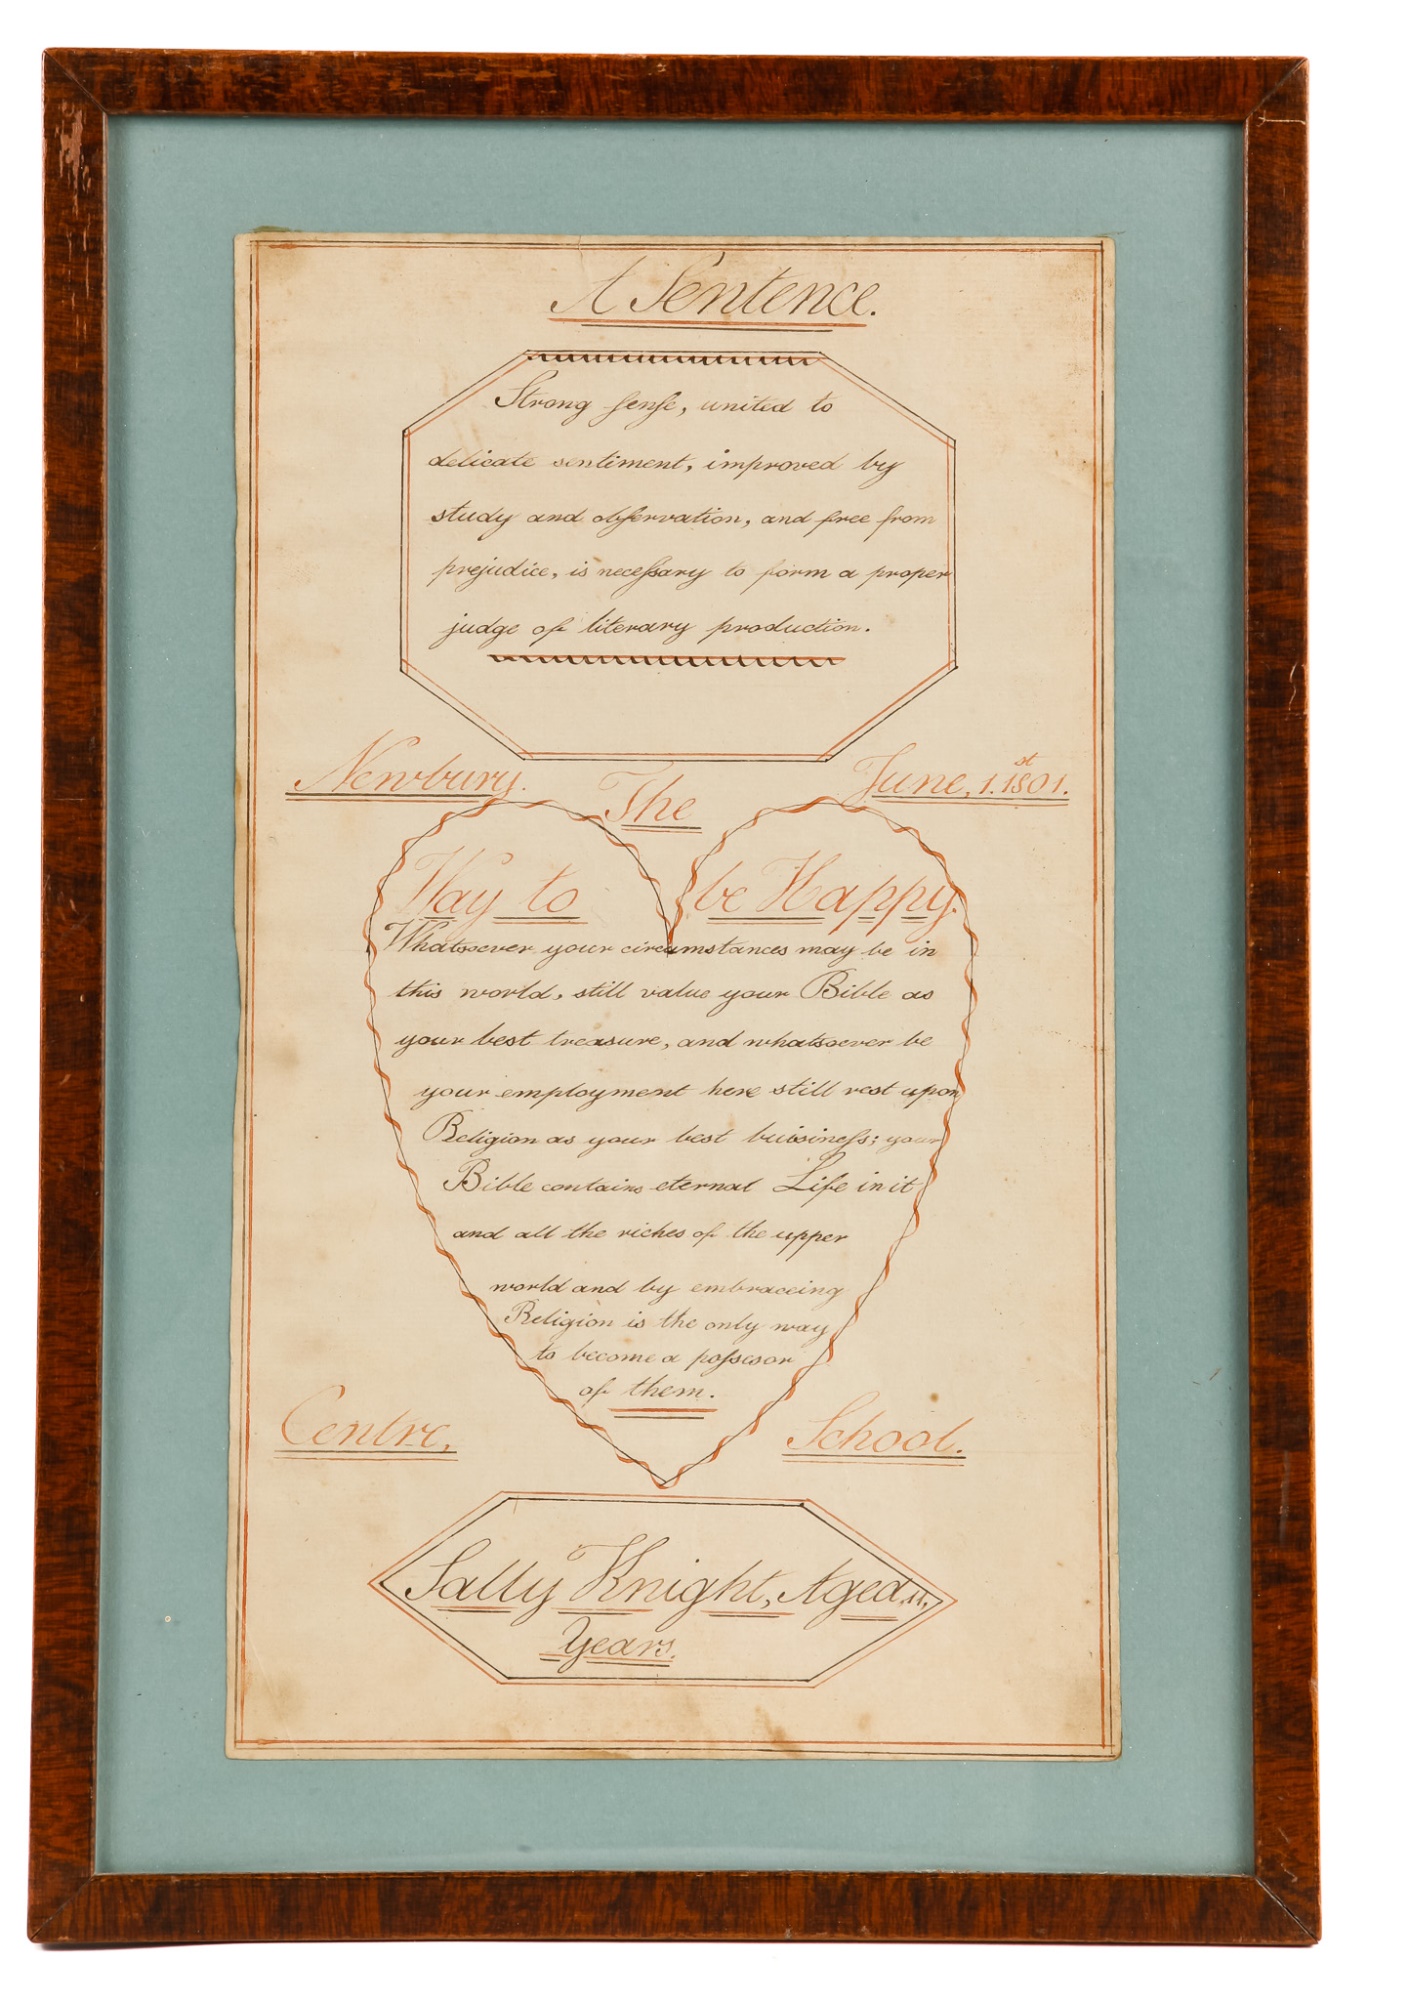 A Sentence.
Strong sense, united to
delicate sentiment, improved by
study and observation, and free from
prejudice, is necessary to form a proper
judge of literary production.
Newbury. June, 1.st 1801.
The
Way to be Happy.
Whatsoever your circumstances may be in
this world, still value your Bible as
your best treasure, and whatsoever be
your employment here still rest upon
Religion as your best buisiness; your
Bible contains eternal Life in it
and all the riches of the upper
world and by embraceing
Religion is the only way
to become a possesor
of them.
Centre, School.
Sally Knight, Aged, 11,
Years.